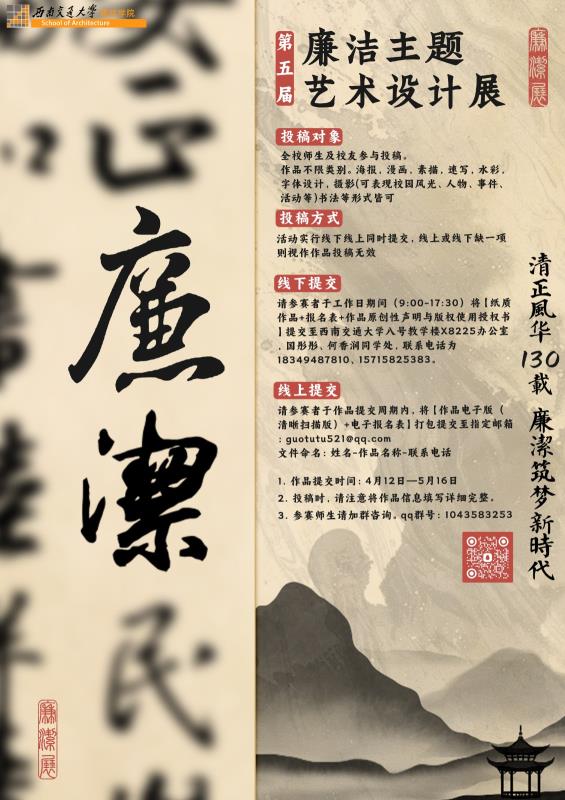 西南交通大学 建筑学院
School of Architecture
廉
潔
民
第五届
廉洁主题
艺术设计展
廉潔展
投稿对象
全校师生及校友参与投稿。
作品不限类别。海报，漫画，素描，速写，水彩，
字体设计，摄影(可表现校园风光、人物、事件、
活动等)书法等形式皆可
投稿方式
活动实行线下线上同时提交，线上或线下缺一项
则视作作品投稿无效
线下提交
请参赛者于工作日期间（9:00-17:30）将【纸质
作品+报名表+作品原创性声明与版权使用授权书
】提交至西南交通大学八号教学楼X8225办公室
，国彤彤、何香润同学处，联系电话为
18349487810、15715825383。
线上提交
请参赛者于作品提交周期内，将【作品电子版（
清晰扫描版）+电子报名表】打包提交至指定邮箱
：guotutu521@qq.com
文件命名：姓名-作品名称-联系电话
1. 作品提交时间：4月12日—5月16日
2. 投稿时，请注意将作品信息填写详细完整。
3. 参赛师生请加群咨询。qq群号：1043583253
清正風华130載 廉潔筑梦新時代
廉潔展